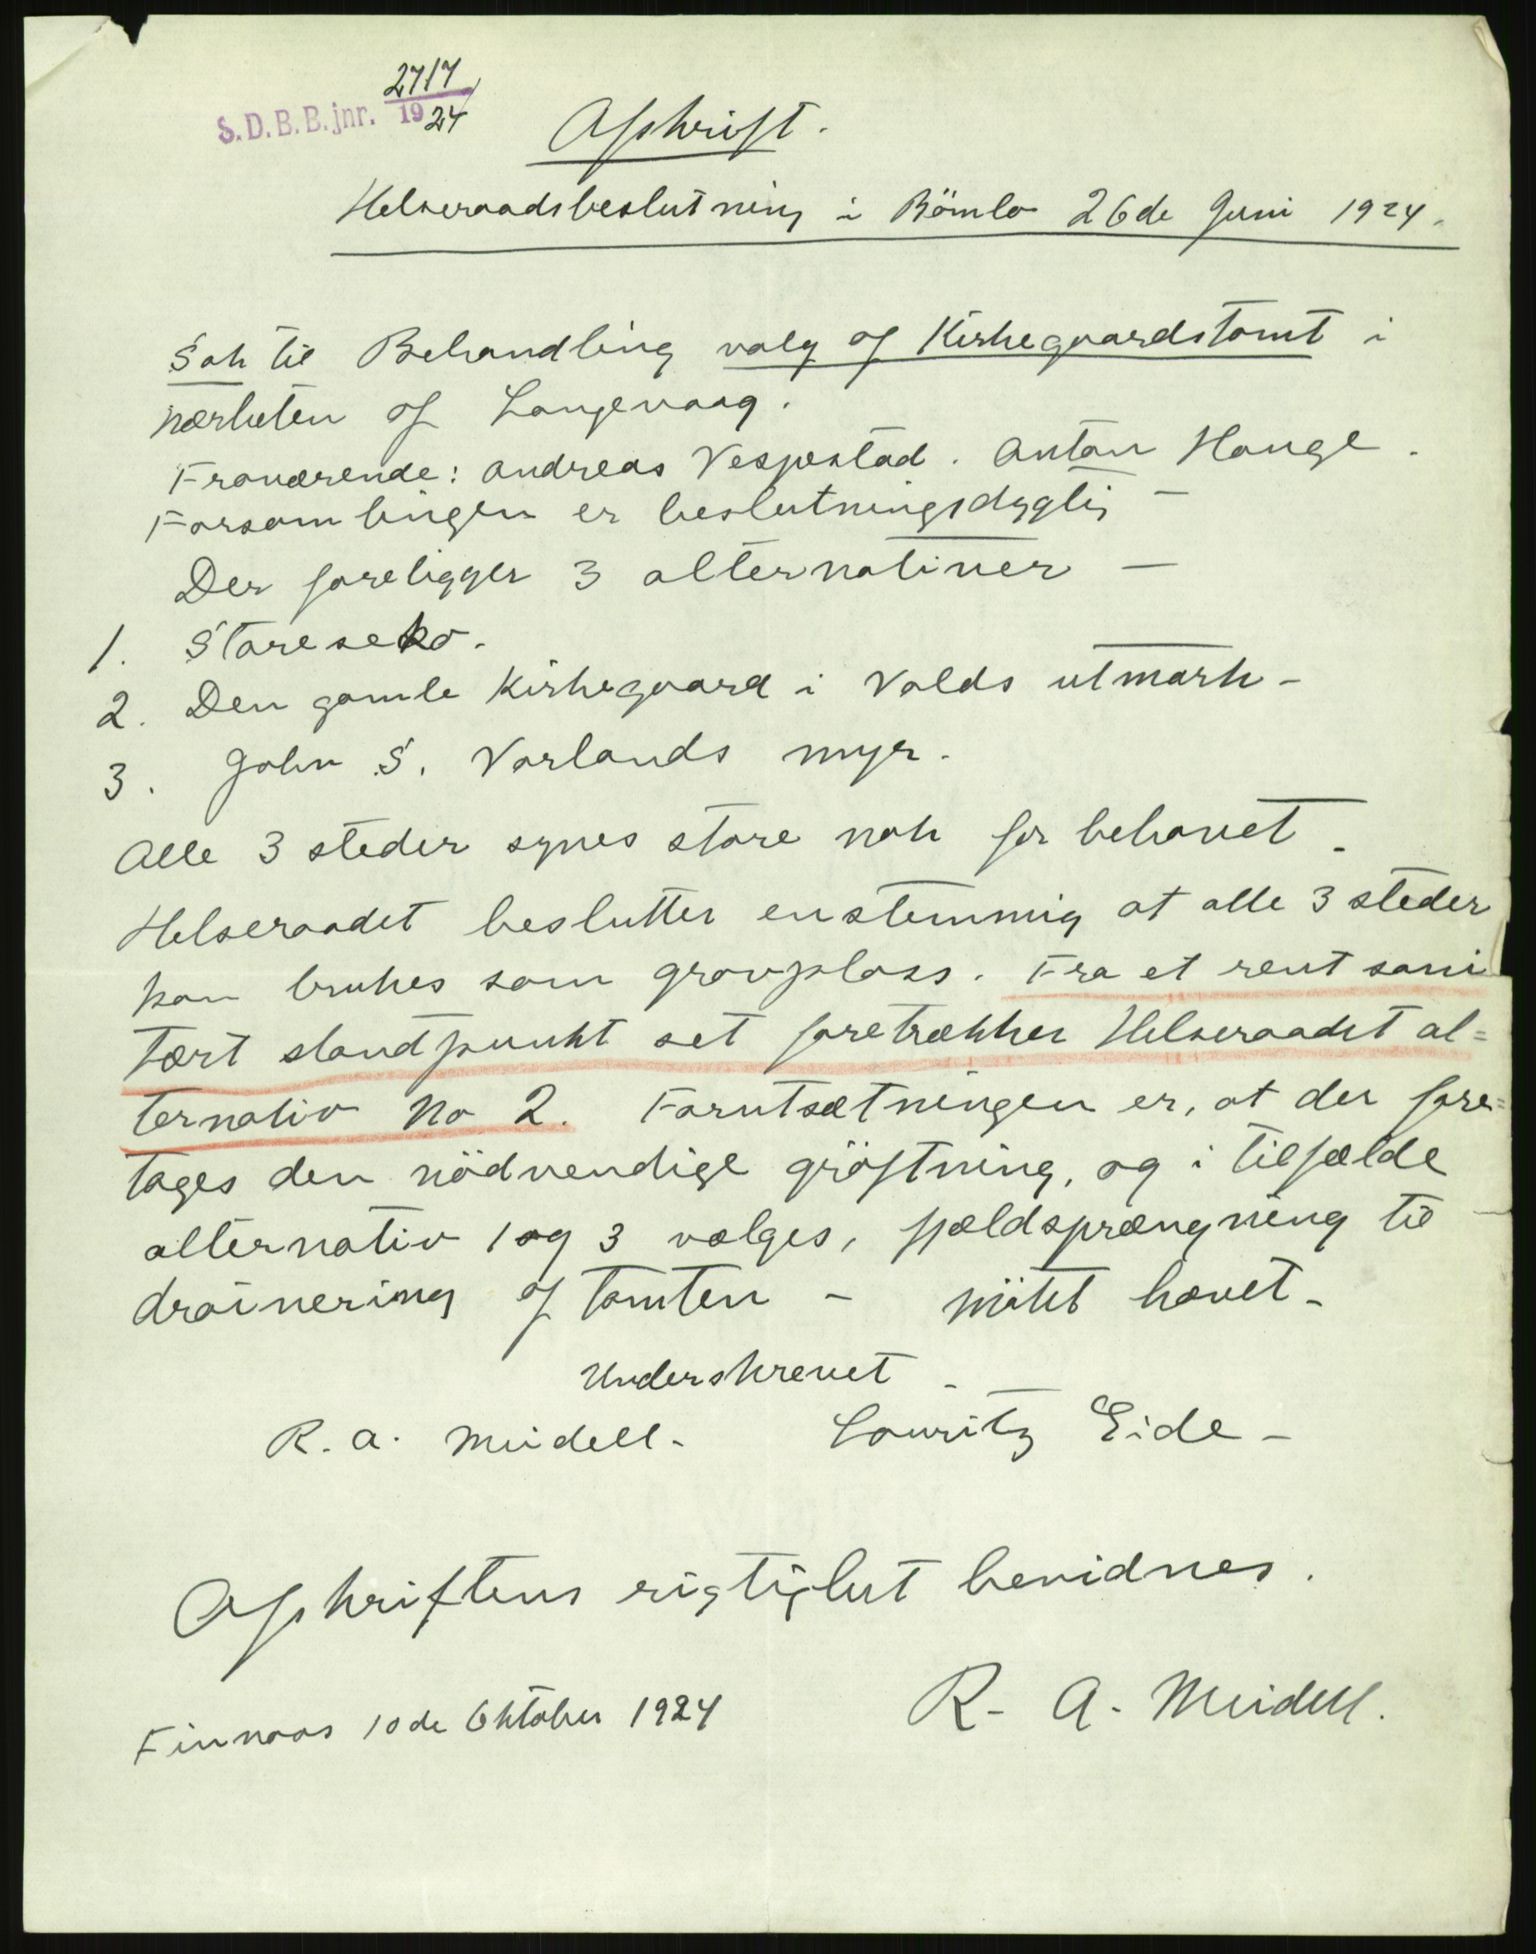 S.D.B.B. jnr. 2717
1924
Afskrift.
Helseraadsbeslutning i Bömlo 26de Juni 1924.
Sak til Behandling valg af Kirkegaardstomt i
nærheten af Langevaag.
Fraværende: Andreas Vespestad. Anton Hauge.
Forsamlingen er beslutningsdygtig –
Der foreligger 3 alternativer –
1. Store
2. Den gamle Kirkegaard i Valds utmark –
3. John S. Vorlands myr.
Alle 3 steder synes store nok for behovet.
Helseraadet beslutter enstemmig at alle 3 steder
kan brukes som gravplass. Fra et rent sani
tært standpunkt set foretrækker Helseraadet al=
ternativ No 2. Forutsætningen er, at der fore=
tages den nödvendige gröftning, og i tilfælde
alternativ 1 og 3 vælges, fjældsprængning til
drainering af tomten – mötet hævet –
Underskrevet –
R. A. Meidell – Lauritz Eide –
Afskriftens rigtighet bevidnes.
Finnaas 10de Oktober 1924 R. A. Meidell.